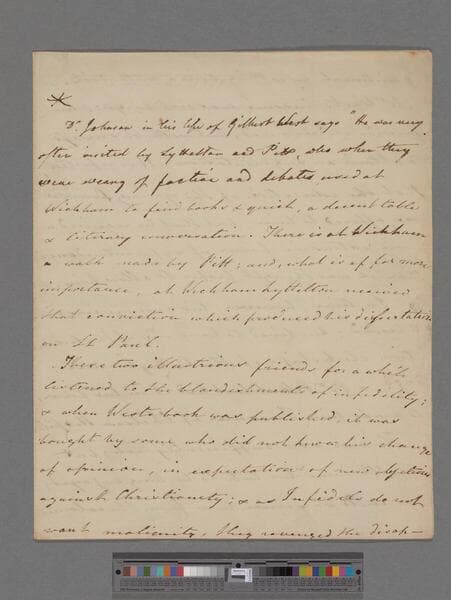 *
Dr. Johnson in his life of Gilbert West says "He was very
often visited by Lyttelton and Pitt, who when they
were weary of faction and debates used at
Wickham to find books & quiet, a decent table
& literary conversation. There is at Wickham
a walk made by Pitt; and, what is of far more
importance, at Wickham Lyttelton received
that conviction which produced his dissertation
on St. Paul.
These two illustrious friends for a while
listened to the blandishments of infidelity;
& when West's book was published, it was
bought by some who did not know his change
of opinion, in expectation of new objections
against Christianity; & as Infidels do not
want malignity, they revenged the disap-